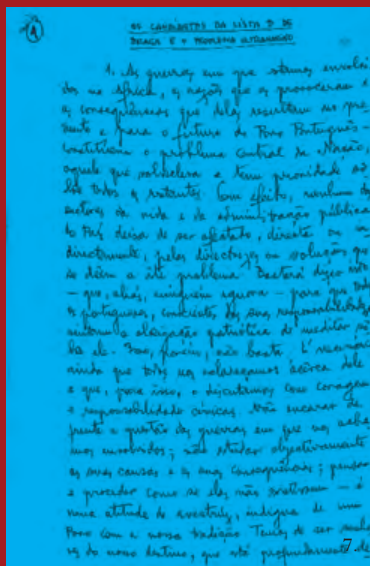 A
OS CANDIDATOS DA LISTA D DE
BRAGA E O PROBLEMA ULTRAMARINO
1. As guerras em que estamos envolvi-
dos na África, as razões que as provocaram e
as consequências que delas resultam no pre-
sente e para o futuro do Povo Português –
constituem o problema central da Nação,
aquele que sobreleva e tem prioridade so-
bre todos os restantes. Com efeito, nenhum dos
sectores da vida e da administração pública
do País deixa de ser afectado, directa ou in-
directamente, pelas directrizes ou soluções que
se dêem a este problema. Bastará dizer isto
– que, aliás, ninguém ignora – para que todos
os portugueses, conscientes das suas responsabilidades,
sintam a obrigação patriótica de meditar so-
bre ele. Isso, porém, não basta. É necessário
ainda que todos nos esclareçamos acêrca dele
e que, para isso, o discutamos com coragem
e responsabilidade cívicas. Não encarar de
frente a questão das guerras em que nos acha-
mos envolvidos; não estudar objectivamente
as suas causas e as suas consequências; pensar
e proceder como se elas não existissem – é
uma atitude de avestruz, indigna de um
Povo com a nossa tradição. Temos de ser senho-
res do nosso destino, que está profundamente de
7.